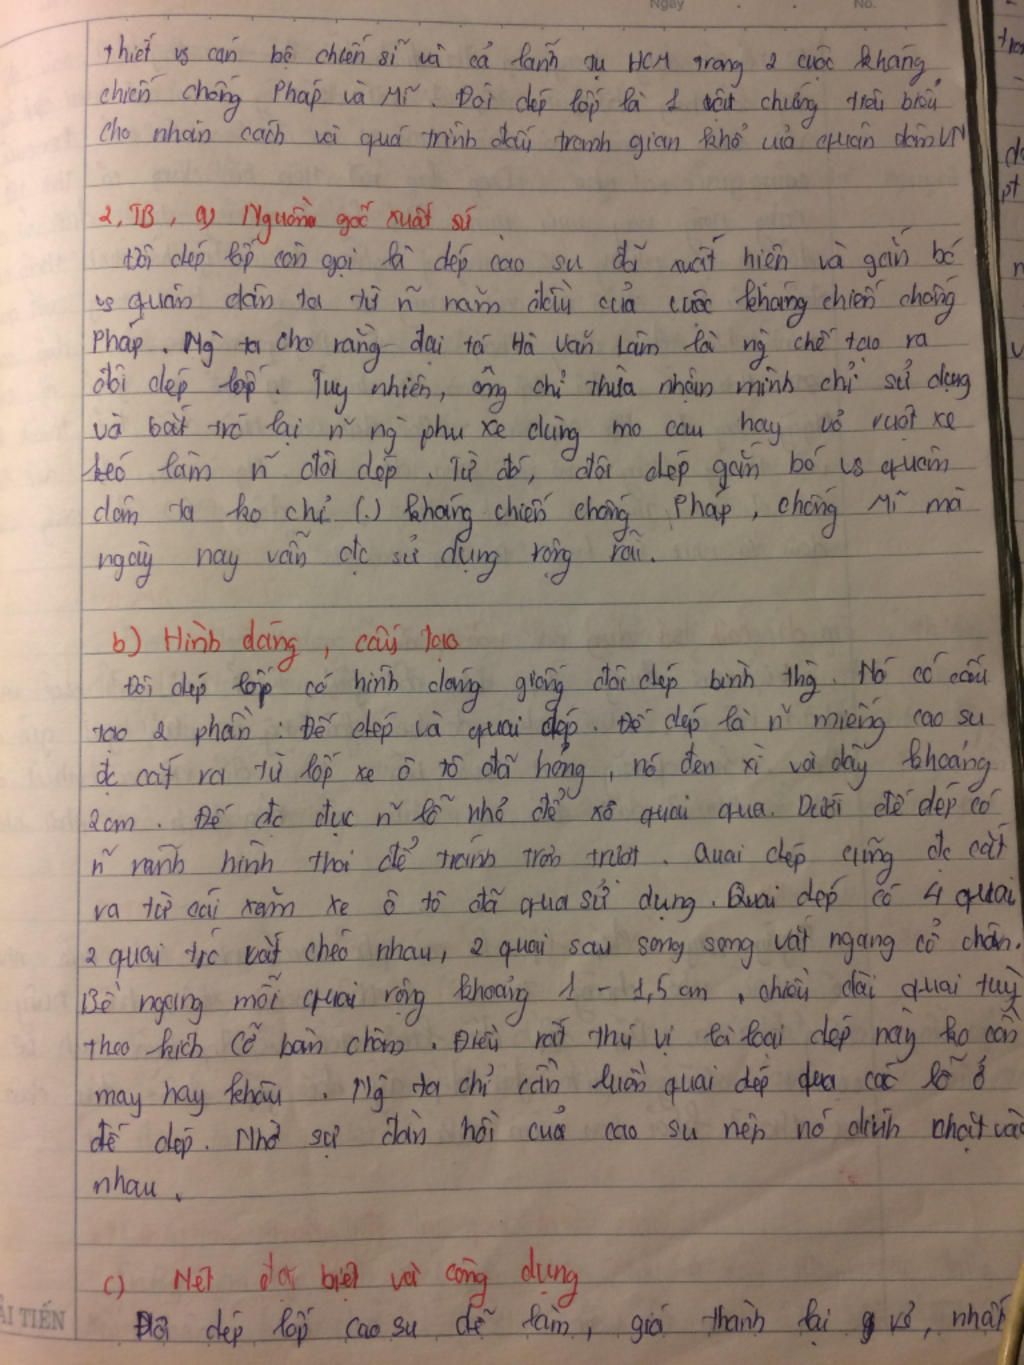 Ngày No.
thiết vs cán bộ chiến sĩ và cả lãnh tụ HCM trong 2 cuộc kháng
chiến chống Pháp và Mĩ. Đôi dép lốp là 1 vật chứng tiêu biểu
cho nhân cách và quá trình đấu tranh gian khổ của quân dân VN
2, TB, a) Nguồn gốc xuất sứ
Đôi dép lốp còn gọi là dép cao su đã xuất hiện và gắn bó
vs quân dân ta từ ñ năm đầu của cuộc kháng chiến chống
Pháp. Ng ta cho rằng đại tá Hà Văn Lâm là ng chế tạo ra
đôi dép lốp. Tuy nhiên, ông chỉ thừa nhận mình chỉ sử dụng
và bắt trc lại ñ ng phu xe dùng mo cau hay vỏ ruột xe
kéo làm ñ đôi dép. Từ đó, đôi dép gắn bó vs quân
dân ta ko chỉ (.) kháng chiến chống Pháp, chống Mĩ mà
ngày nay vẫn đc sử dụng rộng rãi.
b) Hình dáng, cấu tạo
Đôi dép lốp có hình dáng giống đôi dép bình thg. Nó có cấu
tạo 2 phần: Đế dép và quai dép. Đế dép là ñ miếng cao su
đc cắt ra từ lốp xe ô tô đã hỏng, nó đen xì và dày khoảng
2cm. Đế đc đục ñ lỗ nhỏ để xỏ quai qua. Dưới đế dép có
ñ rãnh hình thoi để tránh trơn trượt. Quai dép cũng đc cắt
ra từ cái xăm xe ô tô đã qua sử dụng. Quai dép có 4 quai
2 quai trc vắt chéo nhau, 2 quai sau song song vắt ngang cổ chân.
Bề ngang mỗi quai rộng khoảng 1 - 1,5 cm, chiều dài quai tuỳ
theo kích cỡ bàn chân. Điều rất thú vị là loại dép này ko cần
may hay khâu. Ng ta chỉ cần luồn quai dép qua các lỗ ở
đế dép. Nhờ sự đàn hồi của cao su nên nó dính chặt vào
nhau.
c) Nét đặc biệt và công dụng
ẢI TIẾN
Đôi dép lốp cao su dễ làm, giá thành lại rẻ, nhất